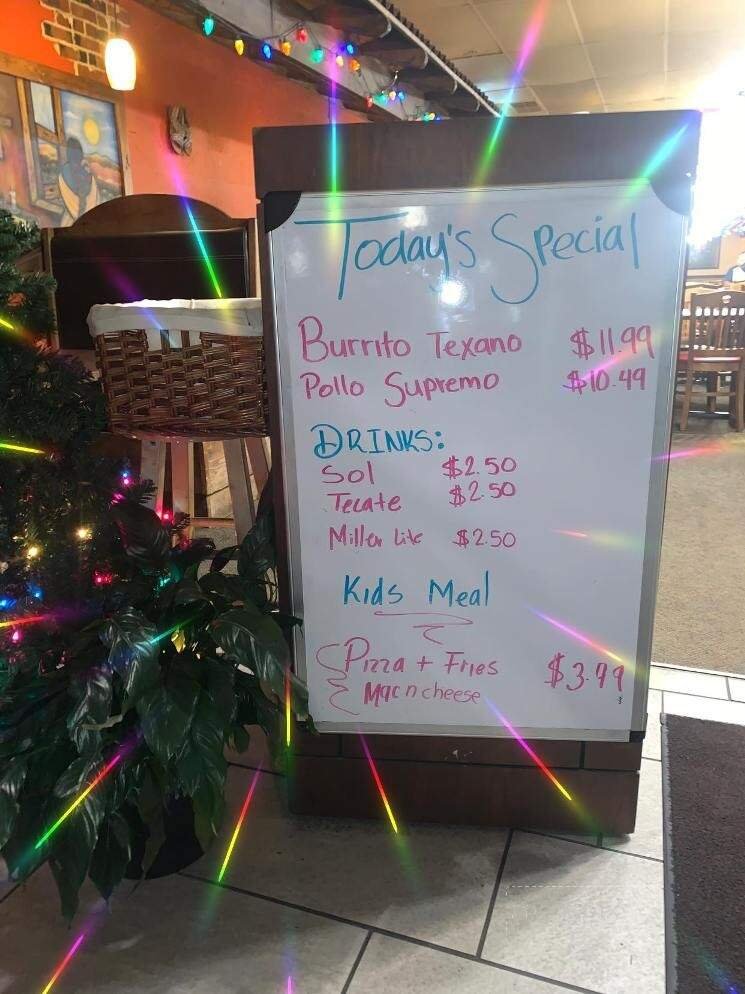 Today's Special
Burrito Texano $11.99
Pollo Supremo $10.49
DRINKS:
Sol $2.50
Tecate $2.50
Miller Lite $2.50
Kids Meal
Pizza + Fries $3.99
Mac n cheese